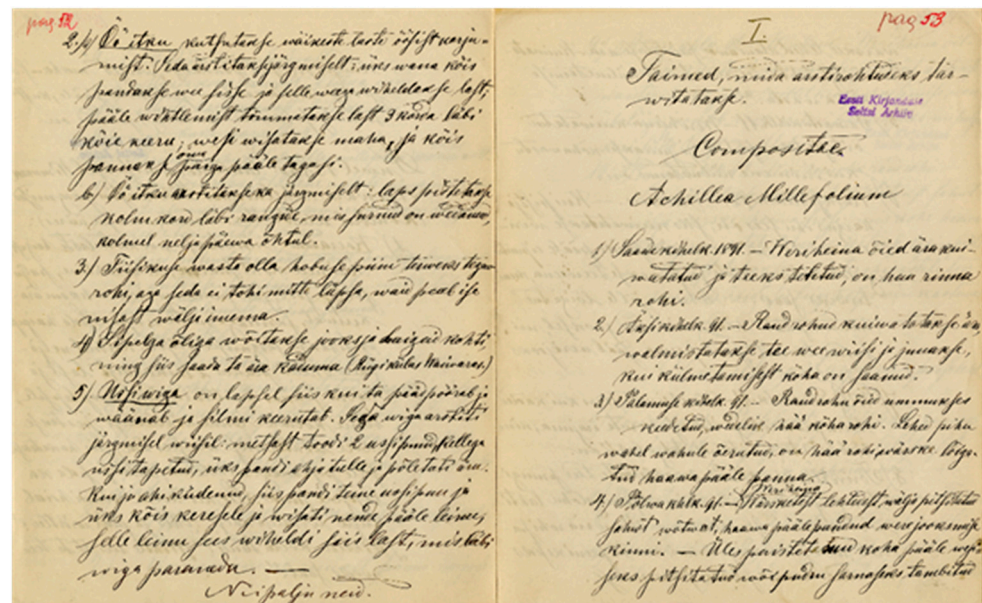 pag 52
2. a) Öö itku kutsutakse wäikeste laste öösist karju-
mist. Seda arstitakse järgmiselt: üks wana köis
pandakse wee sisse ja selle weega wiheldakse last,
pääle wihtlemist tõmmatakse last 3 korda läbi
köie keeru; wesi wisatakse maha, ja köis
pannakse oma paiga pääle tagasi.
b) Öö itku arstitakse ka järgmiselt: laps pistetakse
kolm kord läbi rangide, mis hurnud on
kolmel neljapäewa õhtul.
3.) Tiisikuse wasta olla hobuse piim
rohi, aga seda ei tohi mitte lüpsa, waid peab ise
nisast wälja imema.
4) õliga wõitakse jooksja haigeid kohti
ning siis saada ta ära kaduma (Rügi külas Waiwaras.)
5) Ussi wiga on lapsel siis kui ta pääd pöörab ja
wäänab ja silmi keerutab. Seda wiga arstiti
järgmisel wiisil: metsast toodi 2 ussi puud, kellega
ussi tapetud, üks pandi ahju tulle ja põletati ära.
Kui jo ahi küdenud, siis pandi teine ussi puu ja
üks köis keresele ja wisati nende pääle leine;
selle leinu sees wiheldi siis last, mis läbi
wiga paraneda. —
Nii palju neid.
pag 53
I.
Taimed, mida arstirohtuseks tar-
witatakse.
Eesti Kirjanduse
Seltsi Arhiiv
Compositae.
Achillea Millefolium
1) Saarde kihelk. 1891. — Weriheina õied ära kui-
watatud ja teeks tehtud, on hea rinna
rohi.
2) kihelk. 91. — Raudrohud kuiwatatakse ära,
walmistatakse tee wee wiisi ja juuakse,
kui külmetamisest köha on saanud.
3) Palamuse kihelk. 91. — Raudrohu õied ummukses
keedetud, wedelik hää köha rohi. Lehed pihu
wahel wahule õerutud, on hää rohi wärske lõiga-
tud haawa pääle panna.
4) Põlwa khlk. 91. — Weriheina Wärsketest lehtest wälja pitsitetu
sahwt wõtwat, haawa pääle pandud werejooksmise
kinni. — Üles paistetetud koha pääle
seks pitsitatud wõi pudru sarnaseks tambitud